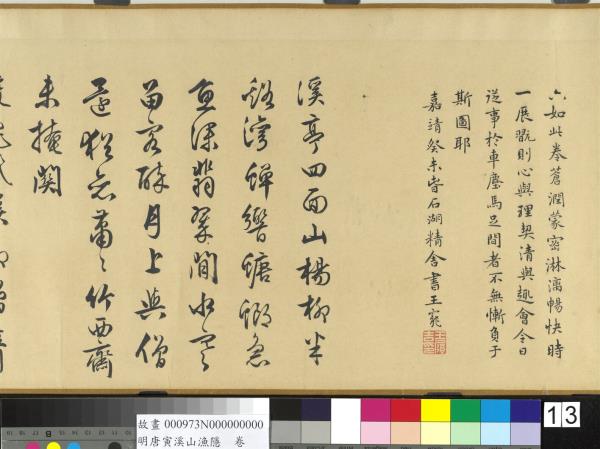 六如此卷蒼潤蒙密淋漓暢快時
一展翫則心與理契清與趣會今日
從事於車塵馬足間者不無慚負于
斯圖耶
嘉靖癸未峕石湖精舍書王寵
溪亭四面山楊柳半
谿灣蟬響螗蜋急
魚深翡翠閒水寒
留客醉月上與僧
還猶恋蕭〻竹西齋
未掩關
故畫 000973N000000000
明唐寅溪山漁隱 卷
13